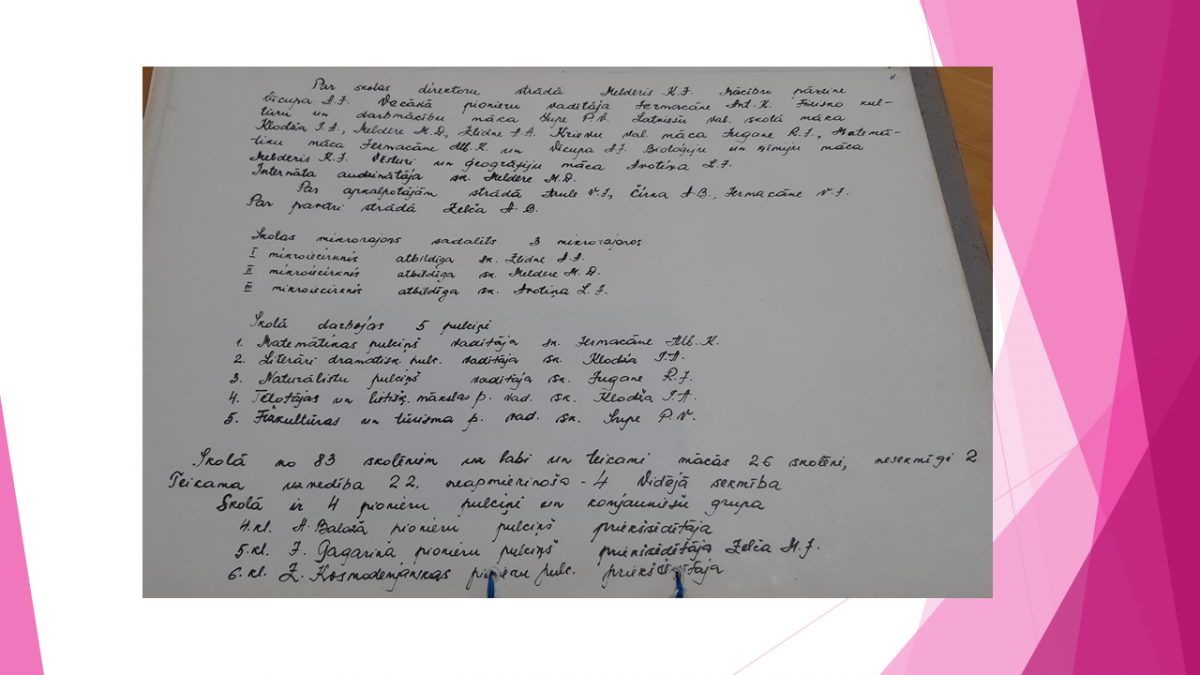 Par skolas direktoru strādā Melderis K.J. Mācību pārzine
Vicupa A.J. Vecākā pionieru vadītāja Germacāne Ant. K. Fizisko kul-
tūru un darbmācību māca Supe P.V. Latviešu val. skolā māca
Klodža I.A., Meldere M.D., Zlidne A.A. Krievu val. māca Jugane R.J., Matemā-
tiku māca Germacāne Alb. K. un Vicupa A.J. Bioloģiju un ķīmiju māca
Melderis K.J. Vēsturi un ģeogrāfiju māca Avotiņa L.J.
Internāta audzinātāja sk. Meldere M.D.
Par apkalpotājām strādā V.J., Čirka A.B., Germacāne V.J.
Par pavāri strādā Zelča A.D.
Skolas mikrorajons sadalīts 3 mikrorajonos
I mikroiecirknis atbildīga sk. Zlidne A.A.
II mikroiecirknis atbildīga sk. Meldere M.D.
III mikroiecirknis atbildīga sk. Avotiņa L.J.
Skolā darbojas 5 pulciņi
1. Matemātikas pulciņš vadītāja sk. Germacāne Alb. K.
2. Literāri dramatisk. pulc. vadītāja sk. Klodža I.A.
3. Naturālistu pulciņš vadītāja sk. Jugane R.J.
4. Tēlotājas un lietišķ. mākslas p. vad. sk. Klodža I.A.
5. Fizkultūras un tūrisma p. vad. sk. Supe P.V.
Skolā no 83 skolēniem uz labi un teicami mācās 26 skolēni, nesekmīgi 2
Teicama uzvedība 22. neapmierinoša - 4 Vidējā sekmība
Skolā ir 4 pionieru pulciņi un komjauniešu grupa
4.kl. A. Baložа pionieru pulciņš priekšsēdētāja
5.kl. J. Gagarina pionieru pulciņš priekšsēdētāja Zelča M.J.
6.kl. Z. Kosmodemjanskas pionieru pulc. priekšsēdētāja